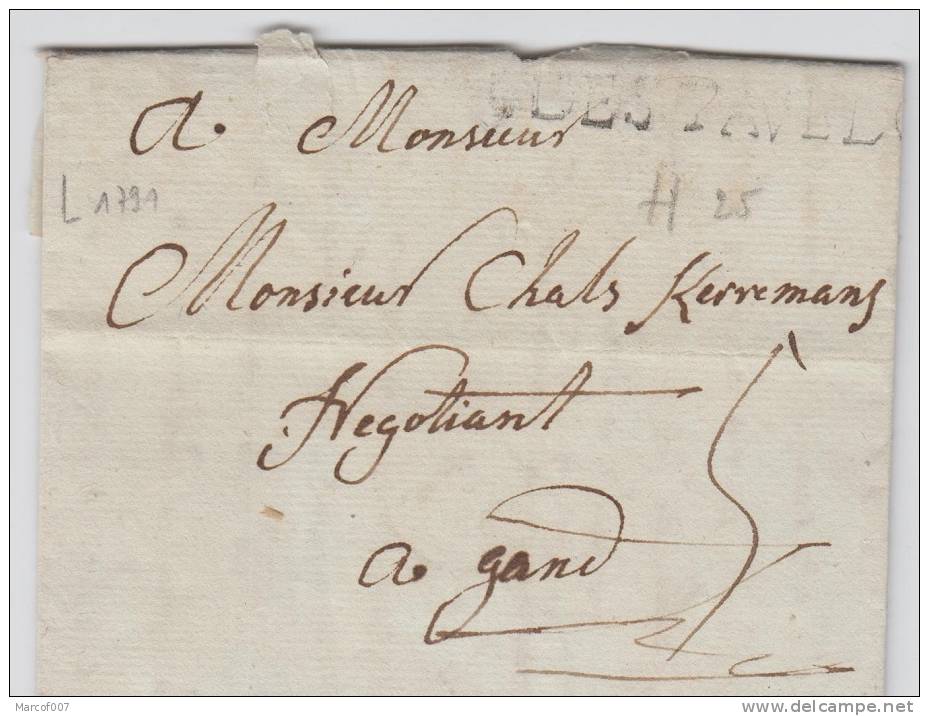 DESTAVEL
A Monsieur
L 1791
H 25
Monsieur Chals Kerremans
Negotiant
5
a gand
Marcof007
www.delcampe.net